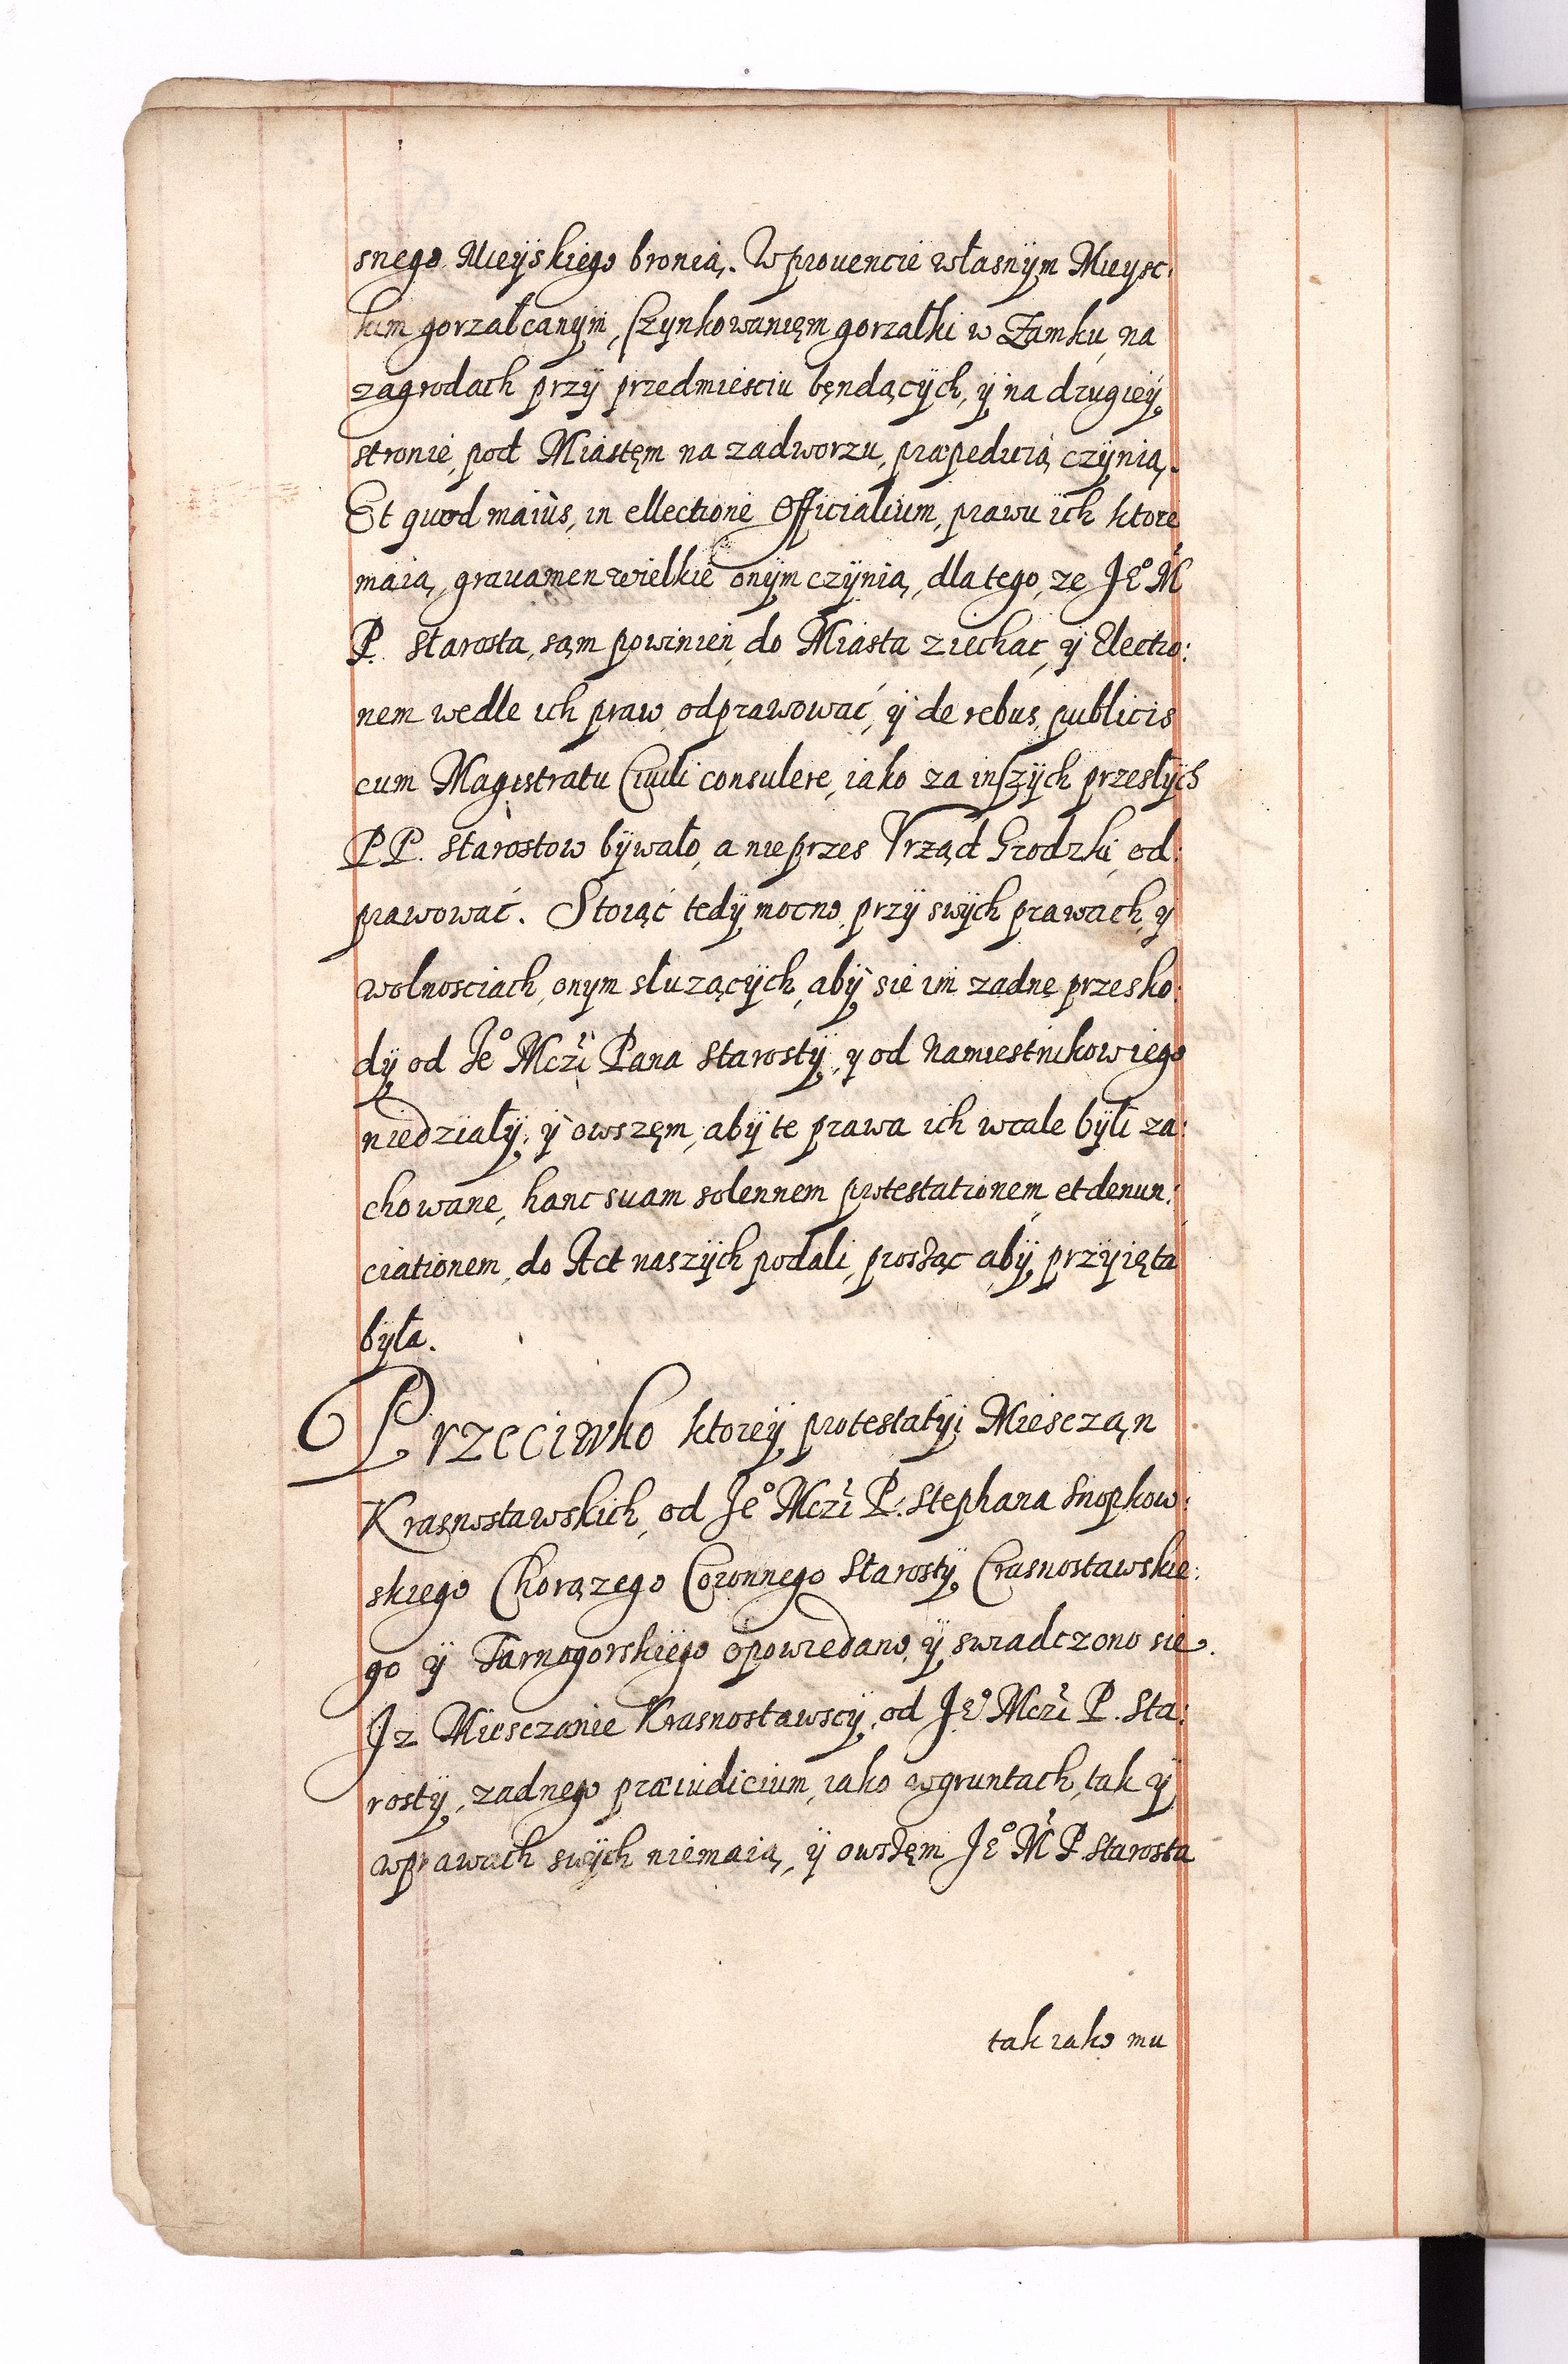 snego Mieÿskiego bronią. W prouencie własnÿm Mieysc:
kim gorzałcanÿm, szynkowanięm gorzałki w Zamku, na
zagrodach przÿ przedmiesciu będącÿch, ÿ na drugieÿ
stronie, pod Miastęm na zadworzu, præpedicią czÿnią.
Et quod maiùs, in ellectione Officialium, prawu ich ktore
maią, grauamen wielkie onÿm czÿnią, dla tego, ze Jeº Mć
P. Starosta, sąm powinien do Miasta ziechać, ÿ Electio:
nem wedle ich praw odprawować, ÿ de rebus publicis
cum Magistratu Ciuili consulere, iako za inszÿch przesłÿch
PP. Starostow bÿwało, a nie przes Vrząd Grodzki od:
prawować. Stoiąc tedÿ mocno przÿ swÿch prawach, ÿ
wolnosciach, onym słuzącÿch, abÿ sie im zadne przesko:
dÿ od Jeº Mczi Pana Starostÿ, ÿ od Namiestnikow iego
niedziałÿ, ÿ owszęm, abÿ te prawa ich wcale bÿli za:
chowane, hanc suam solennem protestationem, et denun:
ciationem, do Act naszÿch podali, prosząc abÿ przÿięta
bÿła.
Przeciwko ktoreÿ protestatÿi Miesczan
Krasnostawskich, od Jeº Mczi P. Stephana Snopkow:
skiego Chorązego Coronnego Starostÿ Crasnostawskie:
go ÿ Tarnogorskiego opowiedano, ÿ swiadczono sie.
Jz Miesczanie Krasnostawscÿ, od Jeº Mczi P. Sta:
rostÿ, zadnego præiudicium, iako w gruntach, tak ÿ
w prawach swÿch niemaią, ÿ owszęm Jeº Mć P Starosta
tak iako mu